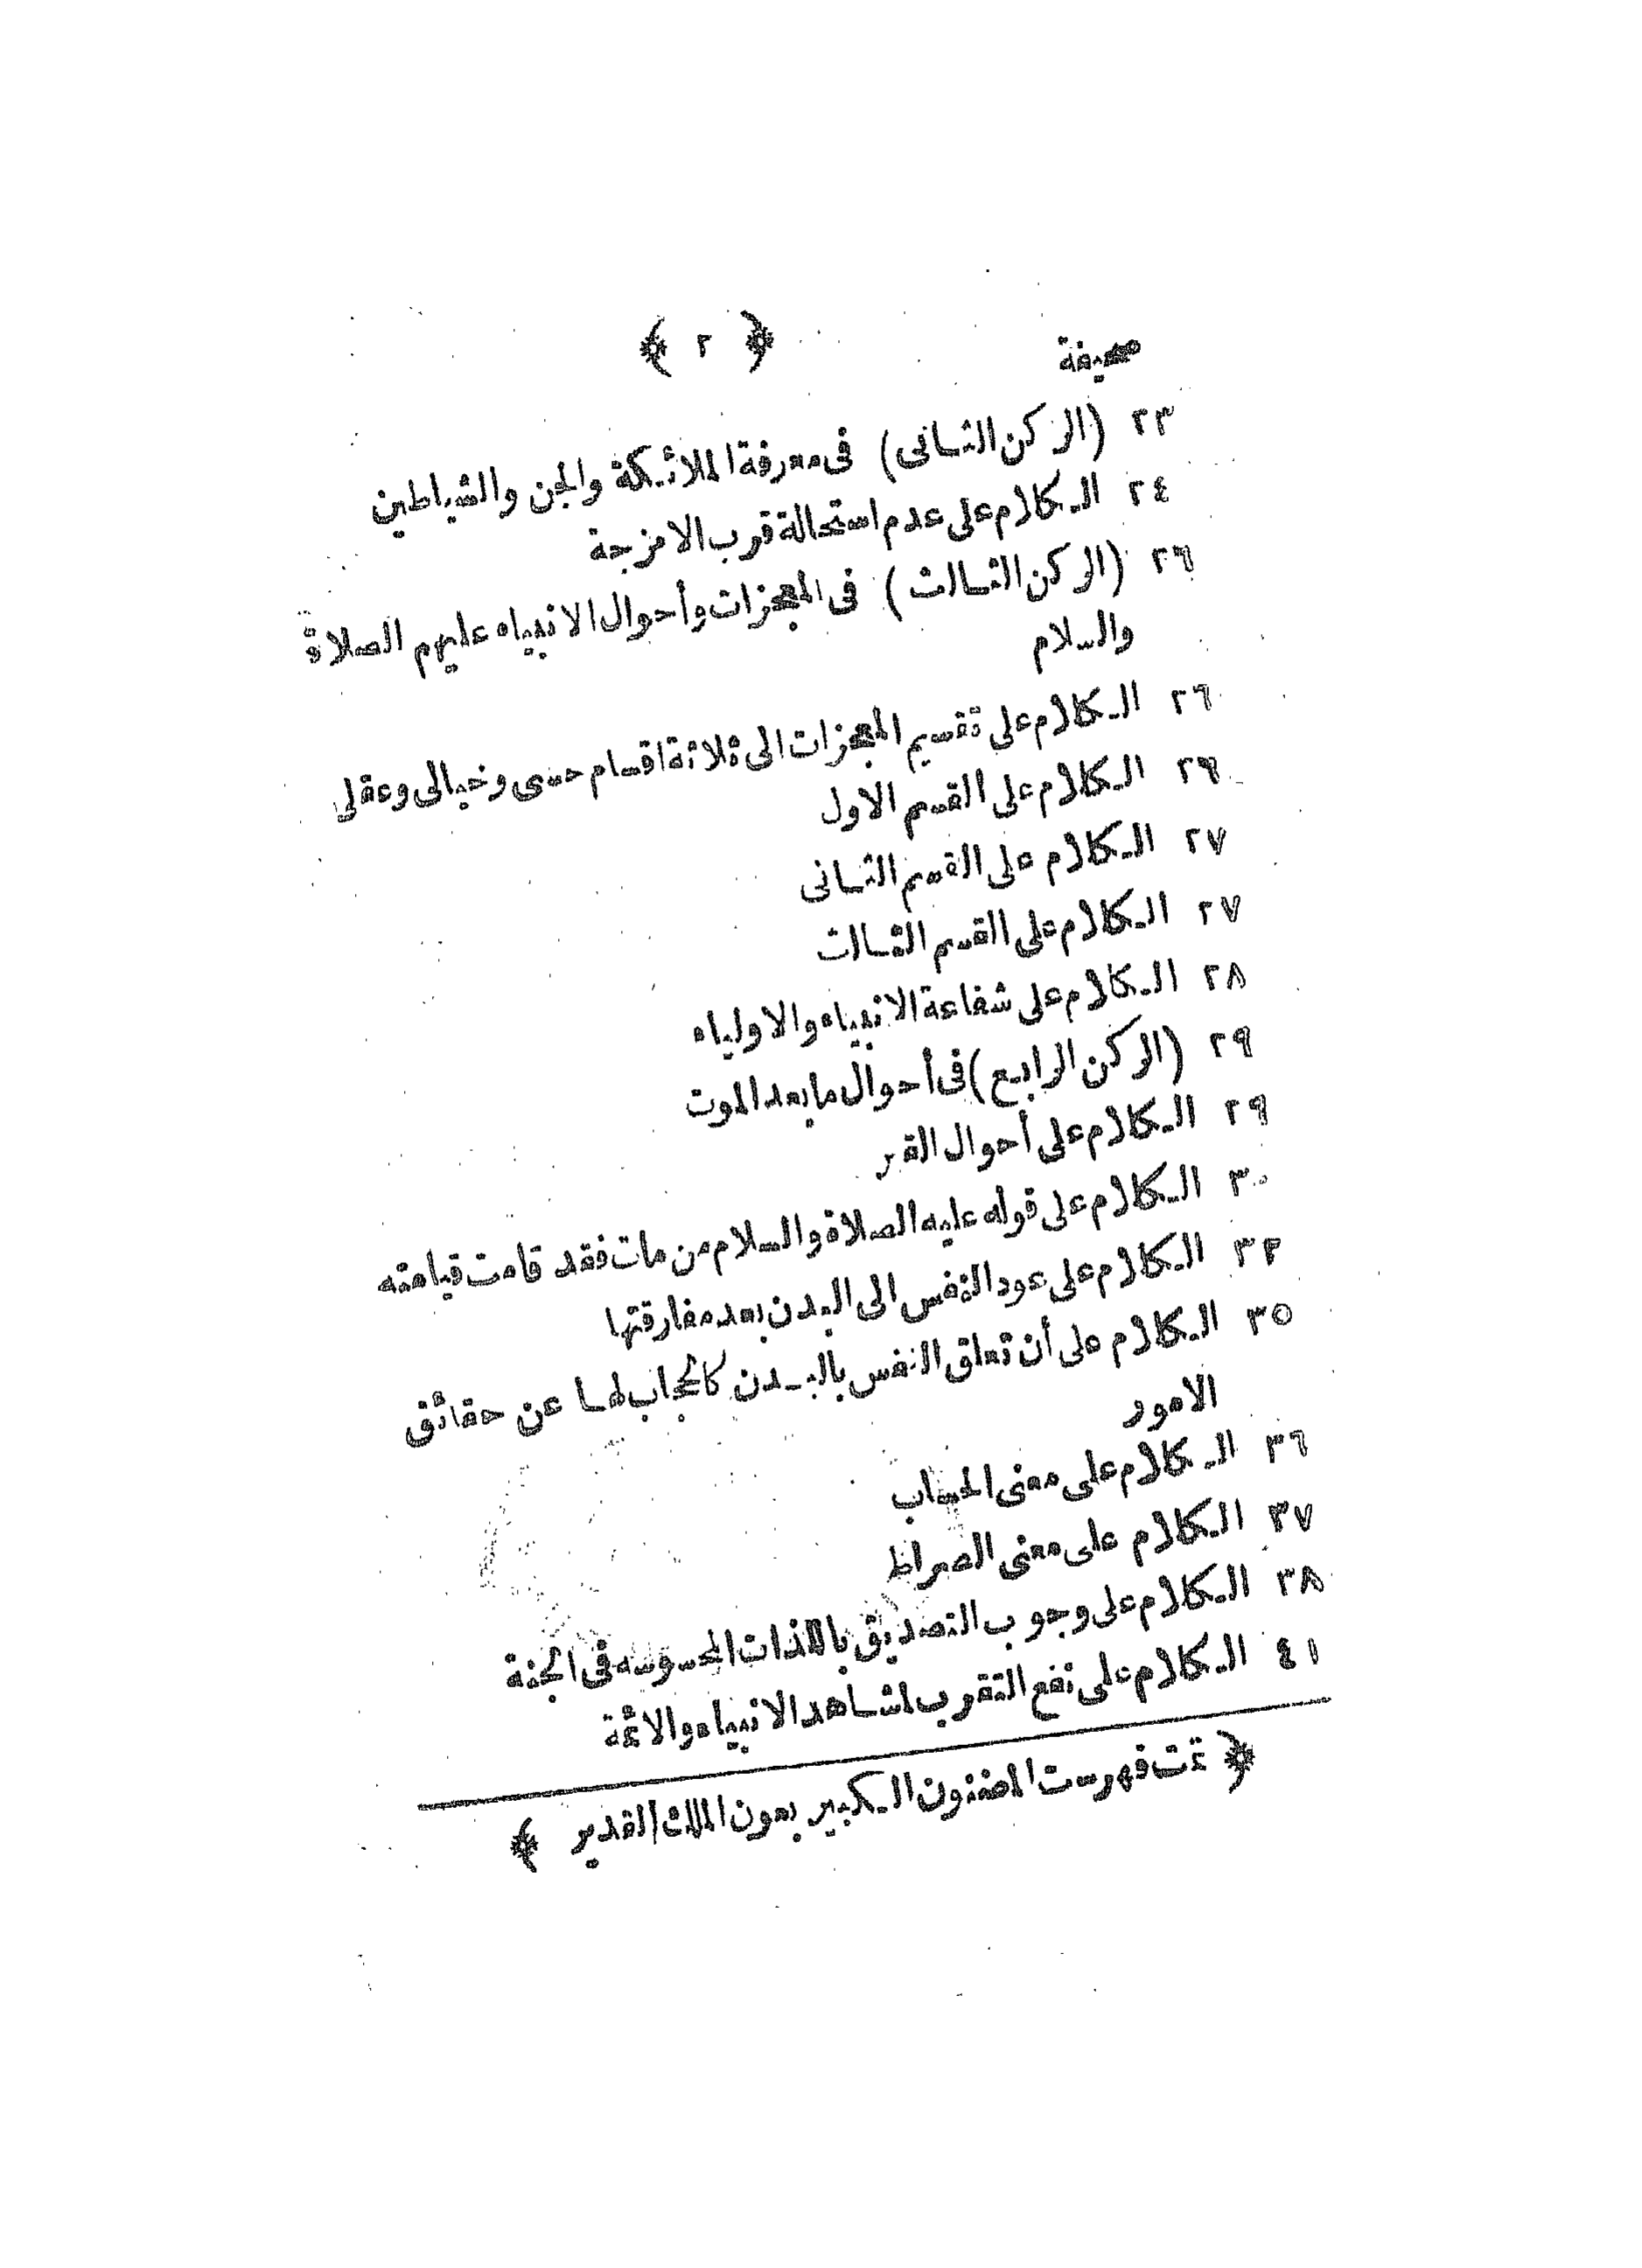 صحيفة ﴿ ٢ ﴾
٢٣ (الركن الثانى) فى معرفة الملائكة والجن والشياطين
٢٤ الكلام على عدم استحالة قرب الامزجة
٢٦ (الركن الثالث) فى المعجزات وأحوال الانبياء عليهم الصلاة
والسلام
٢٦ الكلام على تقسيم المعجزات الى ثلاثة اقسام حسى وخيالى وعقلى
٢٦ الكلام على القسم الاول
٢٧ الكلام على القسم الثانى
٢٧ الكلام على القسم الثالث
٢٨ الكلام على شفاعة الانبياء والاولياء
٢٩ (الركن الرابع) فى أحوال ما بعد الموت
٢٩ الكلام على أحوال القبر
٣٠ الكلام على قوله عليه الصلاة والسلام من مات فقد قامت قيامته
٣٢ الكلام على عود النفس الى البدن بعد مفارقتها
٣٥ الكلام على أن تعلق النفس بالبدن كالحجاب لها عن حقائق
الامور
٣٦ الكلام على معنى الحساب
٣٧ الكلام على معنى الصراط
٣٨ الكلام على وجوب التصديق باللذات المحسوسه فى الجنة
٤١ الكلام على نفع التقرب لمشاهد الانبياء والائمة
﴿ تمت فهرست المضنون الكبير بعون الملك القدير ﴾